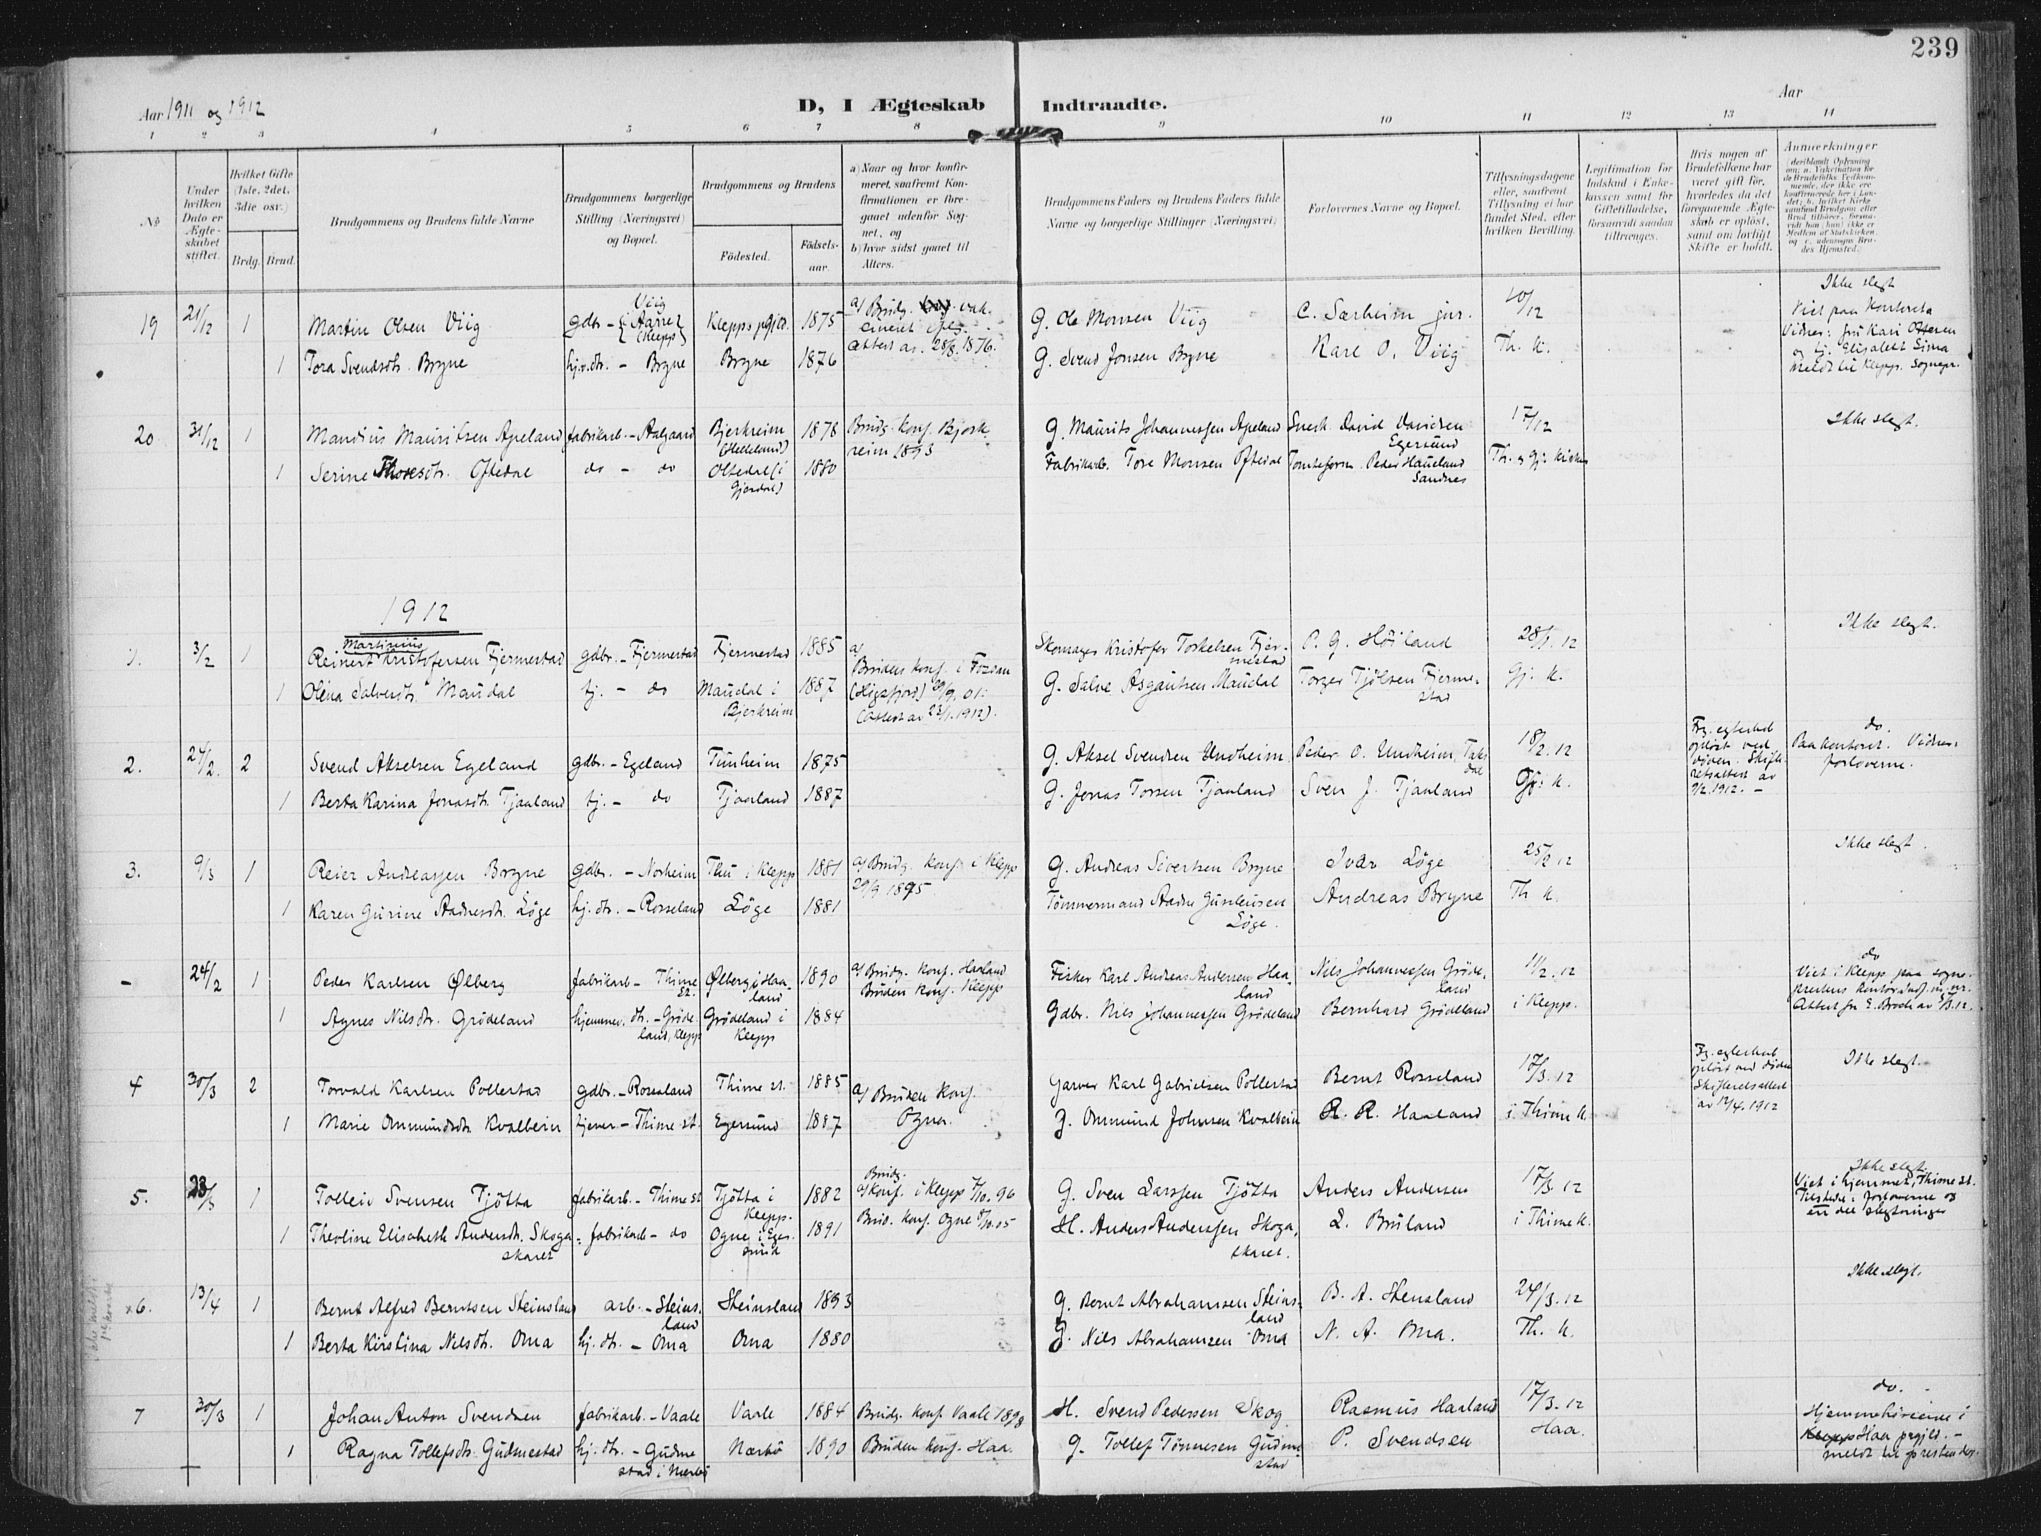 239
Aar 1911 og 1912
D, I Ægteskab Indtraadte.
Aar
1 2 3 4 5 6 7 8 9 10 11 12 13 14
No
Under hvilken Dato er Ægteskabet stiftet.
Hvilket Gifte (1ste, 2det, 3die osv.)
Brdg. Brud.
Brudgommens og Brudens fulde Navne
Brudgommens borgerlige Stilling (Næringsvei) og Bopæl.
Brudgommens og Brudens
Fødested. Fødselsaar.
a) Naar og hvor konfirmeret, saafremt Konfirmationen er foregaaet udenfor Sognet, og
b) hvor sidst gaaet til Alters.
Brudgommens Faders og Brudens Faders fulde Navne og borgerlige Stillinger (Næringsvei)
Forlovernes Navne og Bopæl.
Tillysningsdagene eller, saafremt Tillysning ei har fundet Sted, efter hvilken Bevilling.
Legitimation for Indskud i Enkekassen samt for Giftetilladelse, forsaavidt saadan tiltrænges.
Hvis nogen af Brudefolkene har været gift før, hvorledes da det foregaaende Ægteskab er opløst, samt om lovligt Skifte er holdt.
Anmerkninger
19 21/12 1 Martin Olsen Viig gdbr - Viig Aarre (Klepp) Klepps pgjd. 1875 a) Brudg. vakcineret attest av 28/8 1876. G. Ole Monsen Viig C. Særheim jnr. 10/12 Ikke slegt
1 Tora Svendsdtr. Bryne hj.v.dtr. - Bryne Bryne 1876 G. Svend Jonsen Bryne Karl O. Viig Th. K.
Viet paa Kontoret Vidner: fru Kari og tj. Elisabet Sima meldt til Klepp. Sognepr.
20 31/12 1 Mandius Mauritsen Apeland fabrikarb. - Aalgaard Bjerkreim (Helleland) 1878 Brudg. konf. Bjerkreim 1893 G. Maurits Johannessen Apeland Snerk. David Varidsen Egersund 17/12 Ikke slegt.
1 Serine Thoresdtr. Oftedal do - do Oltedal (i Gjesdal) 1880 Fabrikarb. Tore Monsen Oftedal Tomteform. Peder Haueland Sandnes Th. og Gj. kirker
1912
1. 3/2 1 Reinert Martinius Kristofersen Fjermestad gdbr. - Fjermestad Fjermestad 1885 Skomager Kristofer Torkelsen Fjermestad P. G. Höiland 28/1 12 Ikke slegt.
1 Olena Salvesdtr. Maudal tj. - do Maudal i Bjerkreim 1887 a) Bruden konf. i Fossan (Høgsfjord) 29/9 01. (Attest av 23/1 1912). G. Salve Asgautsen Maudal Torger Tjölsen Fjermestad Gj. K.
2. 24/2. 2 Svend Akselsen Egeland gdbr. - Egeland Tunheim 1875 G. Aksel Svendsen Undheim Peder O. Undheim, Taksdal 18/2. 12 Frg. egteskab opløst ved døden. Skifteretsattest av 9/2. 1912. - do. Paa kontoret. Vidner forloverne.
1 Berta Karina Jonasdtr. Tjaaland tj. - do Tjaaland 1887 G. Jonas Torsen Tjaaland Sven J. Tjaaland Gj. K.
3. 9/3 1 Reier Andreassen Bryne gdbr. - Norheim Thu i Klepp 1881 a) Brudg. konf. i Klepp 29/9 1895 G. Andreas Sivertsen Bryne Ivar Löge 25/2 12 Ikke slegt.
1 Karen Gurine Aadnesdtr. Löge hj. dtr. - Rosseland Löge 1881 Tömmermand Aadne Gunleiksen Löge. Andreas Bryne Th K.
- 24/2 1 Peder Karlsen Ølberg fabrikarb - Thime St. Ølberg i Haaland 1890 a) Brudg. konf. Haaland Bruden konf. Klepp Fisker Karl Andreas Andersen Haaland Nils Johannessen Grödeland 11/2. 12 do
1 Agnes Nilsdtr. Grödeland hjemmev. dtr. - Grödeland, Klepp Grödeland i Klepp 1884 Gdbr. Nils Johannessen Grödeland Bernhard Grödeland i Klepp.
Viet i Klepp paa sogneprestens kontor Attest fr. E. Broch av 5/3. 12.
4 30/3 2 Torvald Karlsen Pollestad gdbr. - Rosseland Thime st. 1885 Garver Karl Gabrielsen Pollestad Bernt Rosseland 17/3. 12 Fg. egteskab opløst ved døden Skifteretsattest av 12/4. 1912 Ikke slegt.
1 Marie Ommundsdtr. Kvalbein tjener - Thime st. Egersund 1887 a) Bruden konf. Ogna. G. Ommund Johnsen Kvalbein R. R. Haaland i Thime K.
5. 23/3 1 Tolleiv Svensen Tjötta fabrikarb. - Thime st Tjötta i Klepp. 1882 Brudg. a) konf. i Klepp 4/10. 96 G. Sven Larssen Tjötta Anders Andersen 17/3. 12 Ikke slegt.
1 Theoline Elisabeth Andersdtr. Skogaskaret fabrikarb - do Ogne i Egersund 1891 Brud. konf. Ogne 8/10. 05 H. Anders Andersen Skogaskaret. L. Bruland i Thime K.
Viet i hjemmet, Thime st. Tilstede: forloverne og en del slegtninger
x6. 13/4 1 Bernt Alfred Berntsen Steinsland arb. - Steinsland Steinsland 1893 G. Bernt Abrahamsen Steinsland B. A. Stensland 24/3. 12 Ikke slegt.
1 Berta Kirstina Nilsdtr. Oma hj. dtr. - Oma Oma 1880 G. Nils Abrahamsen Oma N. A. Oma. Th. K.
7 30/3 1 Johan Anton Svendsen fabrikarb. - Vaale Vaale 1884 Brudg. konf. Vaale 1898 H. Svend Pedersen Skog Rasmus Haaland 17/3. 12 do.
1 Ragna Tollefsdtr. Gudmestad hj. dtr. - Gudmestad i Nærbö Nærbö 1890 Bruden konf. Haa. G. Tollef Tönnesen Gudmestad P. Svendsen Haa.
Hjemmehörende i Haa prgjld. - meldt til presten der.